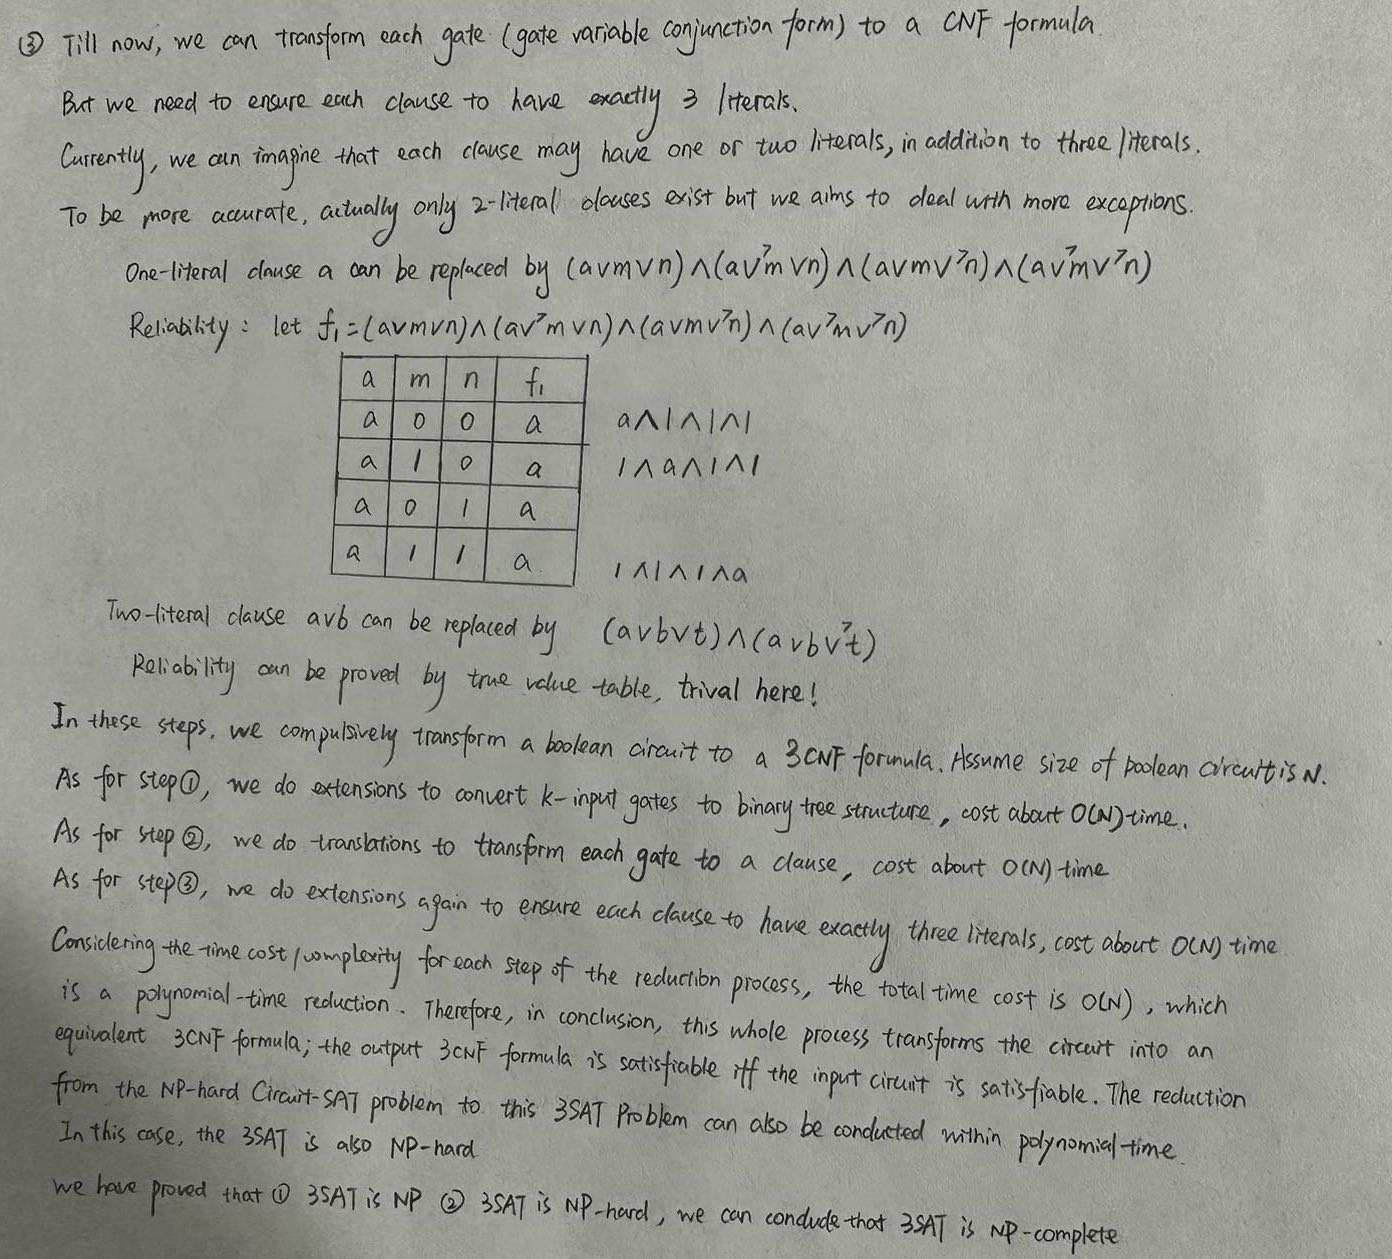 ③ Till now, we can transform each gate (gate variable conjunction form) to a CNF formula
But we need to ensure each clause to have exactly 3 literals.
Currently, we can imagine that each clause may have one or two literals, in addition to three literals.
To be more accurate, actually only 2-literal clauses exist but we aims to deal with more exceptions.
One-literal clause a can be replaced by (a∨m∨n)∧(a∨¬m∨n)∧(a∨m∨¬n)∧(a∨¬m∨¬n)
Reliability: let f₁=(a∨m∨n)∧(a∨¬m∨n)∧(a∨m∨¬n)∧(a∨¬m∨¬n)
a m n f₁
a 0 0 a a∧1∧1∧1
a 1 0 a 1∧a∧1∧1
a 0 1 a
a 1 1 a 1∧1∧1∧a
Two-literal clause a∨b can be replaced by (a∨b∨t)∧(a∨b∨¬t)
Reliability can be proved by true value table, trival here!
In these steps, we compulsively transform a boolean circuit to a 3CNF formula. Assume size of boolean circuit is N.
As for step①, we do extensions to convert k-input gates to binary tree structure, cost about O(N) time.
As for step②, we do translations to transform each gate to a clause, cost about O(N) time
As for step③, we do extensions again to ensure each clause to have exactly three literals, cost about O(N) time
Considering the time cost/complexity for each step of the reduction process, the total time cost is O(N), which
is a polynomial-time reduction. Therefore, in conclusion, this whole process transforms the circuit into an
equivalent 3CNF formula; the output 3CNF formula is satisfiable iff the input circuit is satisfiable. The reduction
from the NP-hard Circuit-SAT problem to this 3SAT Problem can also be conducted within polynomial-time
In this case, the 3SAT is also NP-hard
we have proved that ① 3SAT is NP ② 3SAT is NP-hard, we can conclude that 3SAT is NP-complete